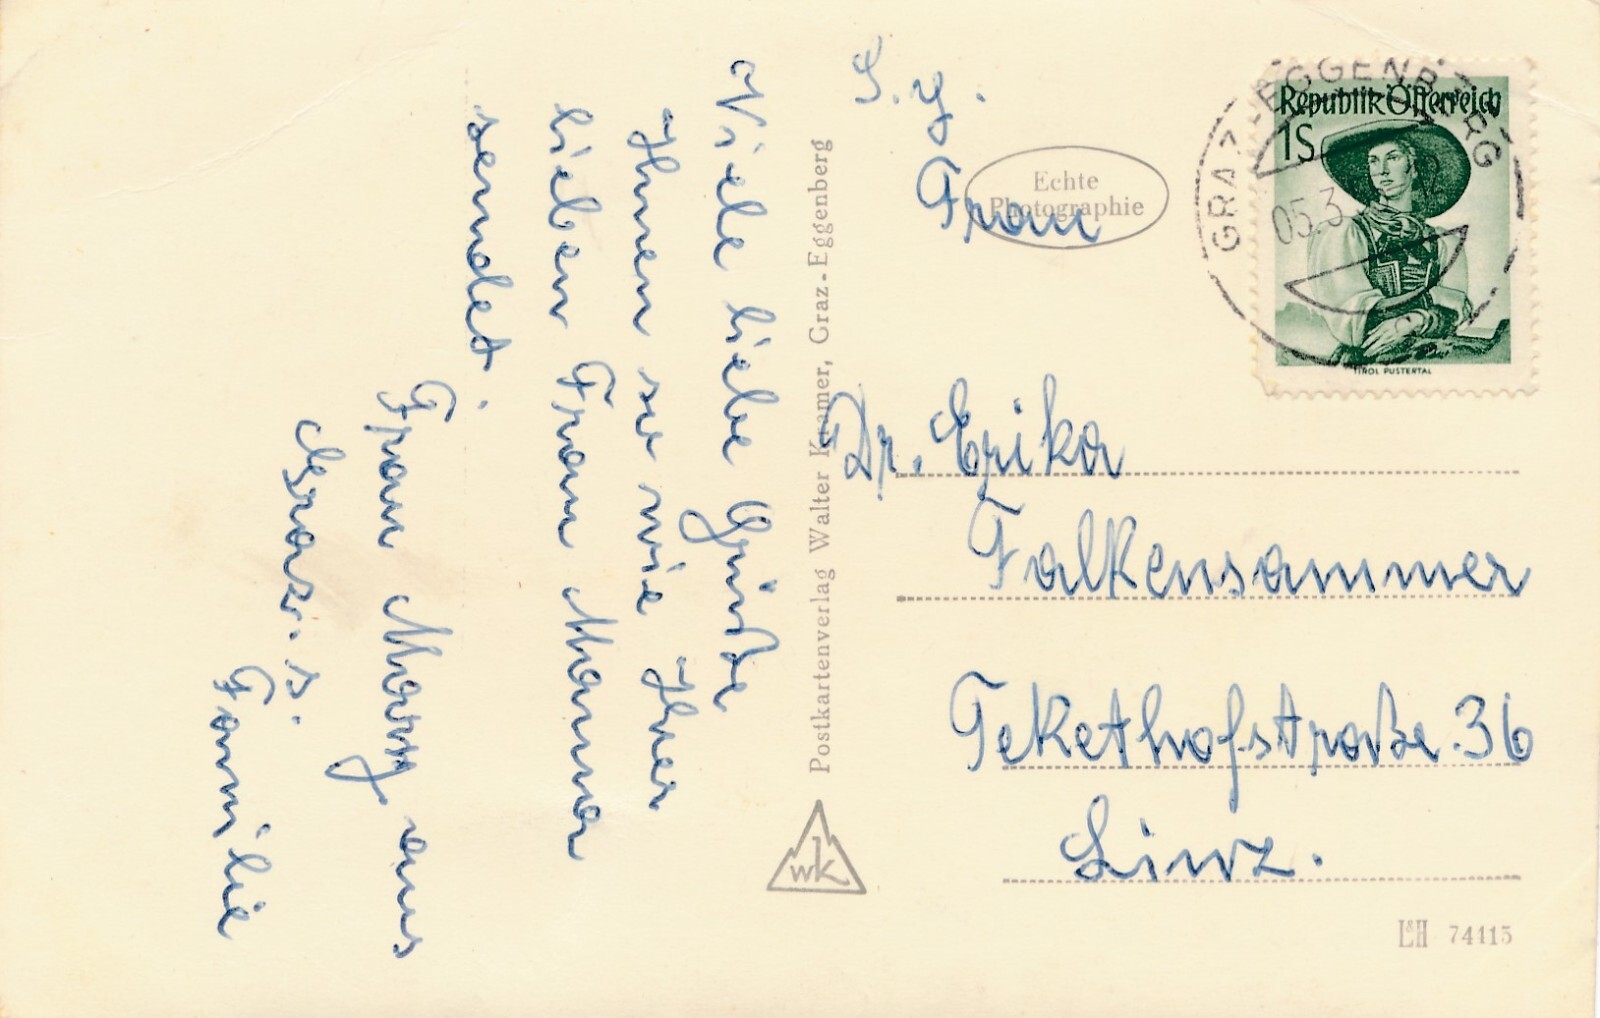 Viele liebe Grüße
Ihnen so wie Ihrer
lieben Frau Mama
sendet.
Frau Mary aus
Graz. s.
Familie
Postkartenverlag Walter Kramer, Graz-Eggenberg
wk
S. g.
Frau
Echte
Photographie
GRAZ-EGGENBERG
05.3
Republik Österreich
1S
TIROL PUSTERTAL
Dr. Erika
Falkensammer
Tekethofstraße.36
Linz.
L&H 74115